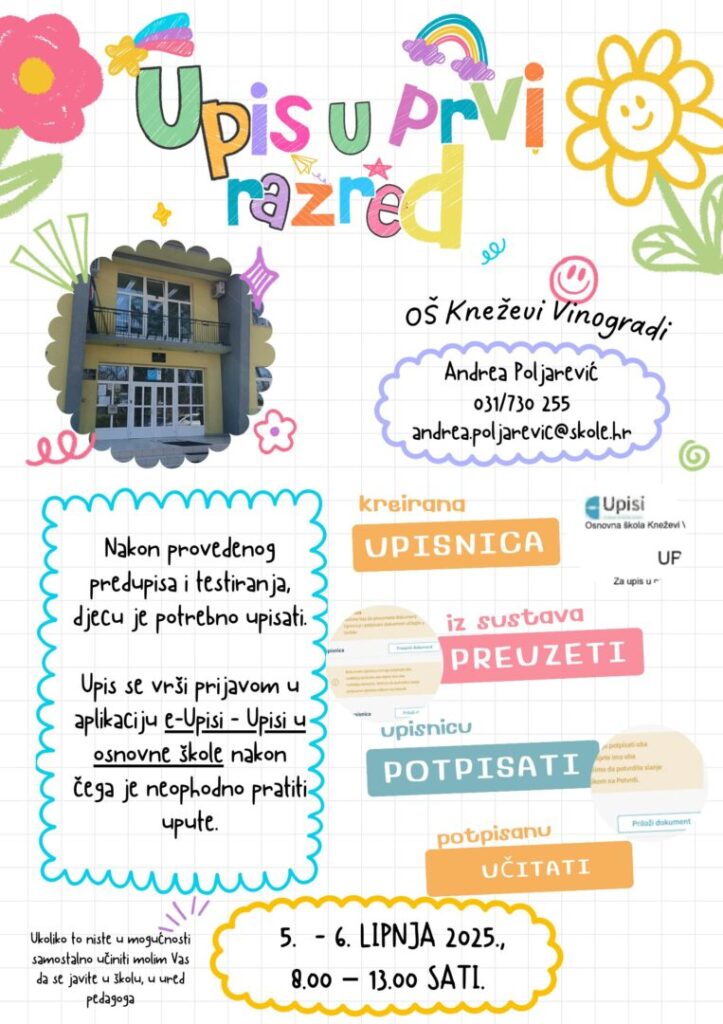 Upis u prvi
razred
OŠ Kneževi Vinogradi
Andrea Poljarević
031/730 255
andrea.poljarevic@skole.hr
Nakon provedenog
predupisa i testiranja,
djecu je potrebno upisati.
Upis se vrši prijavom u
aplikaciju e-Upisi - Upisi u
osnovne škole nakon
čega je neophodno pratiti
upute.
kreirana
UPISNICA
Upisi
Osnovna škola Kneževi V
UF
Za upis u
iz sustava
PREUZETI
upisnicu
POTPISATI
potpisati oba
Priloži dokument
potpisanu
UČITATI
Ukoliko to niste u mogućnosti
samostalno učiniti molim Vas
da se javite u školu, u ured
pedagoga
5. - 6. LIPNJA 2025.,
8.00 – 13.00 SATI.